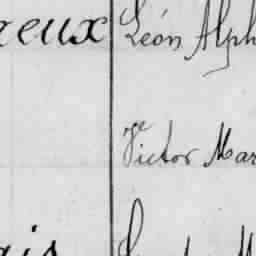 reux Léon Alph
Victor Mar
ais